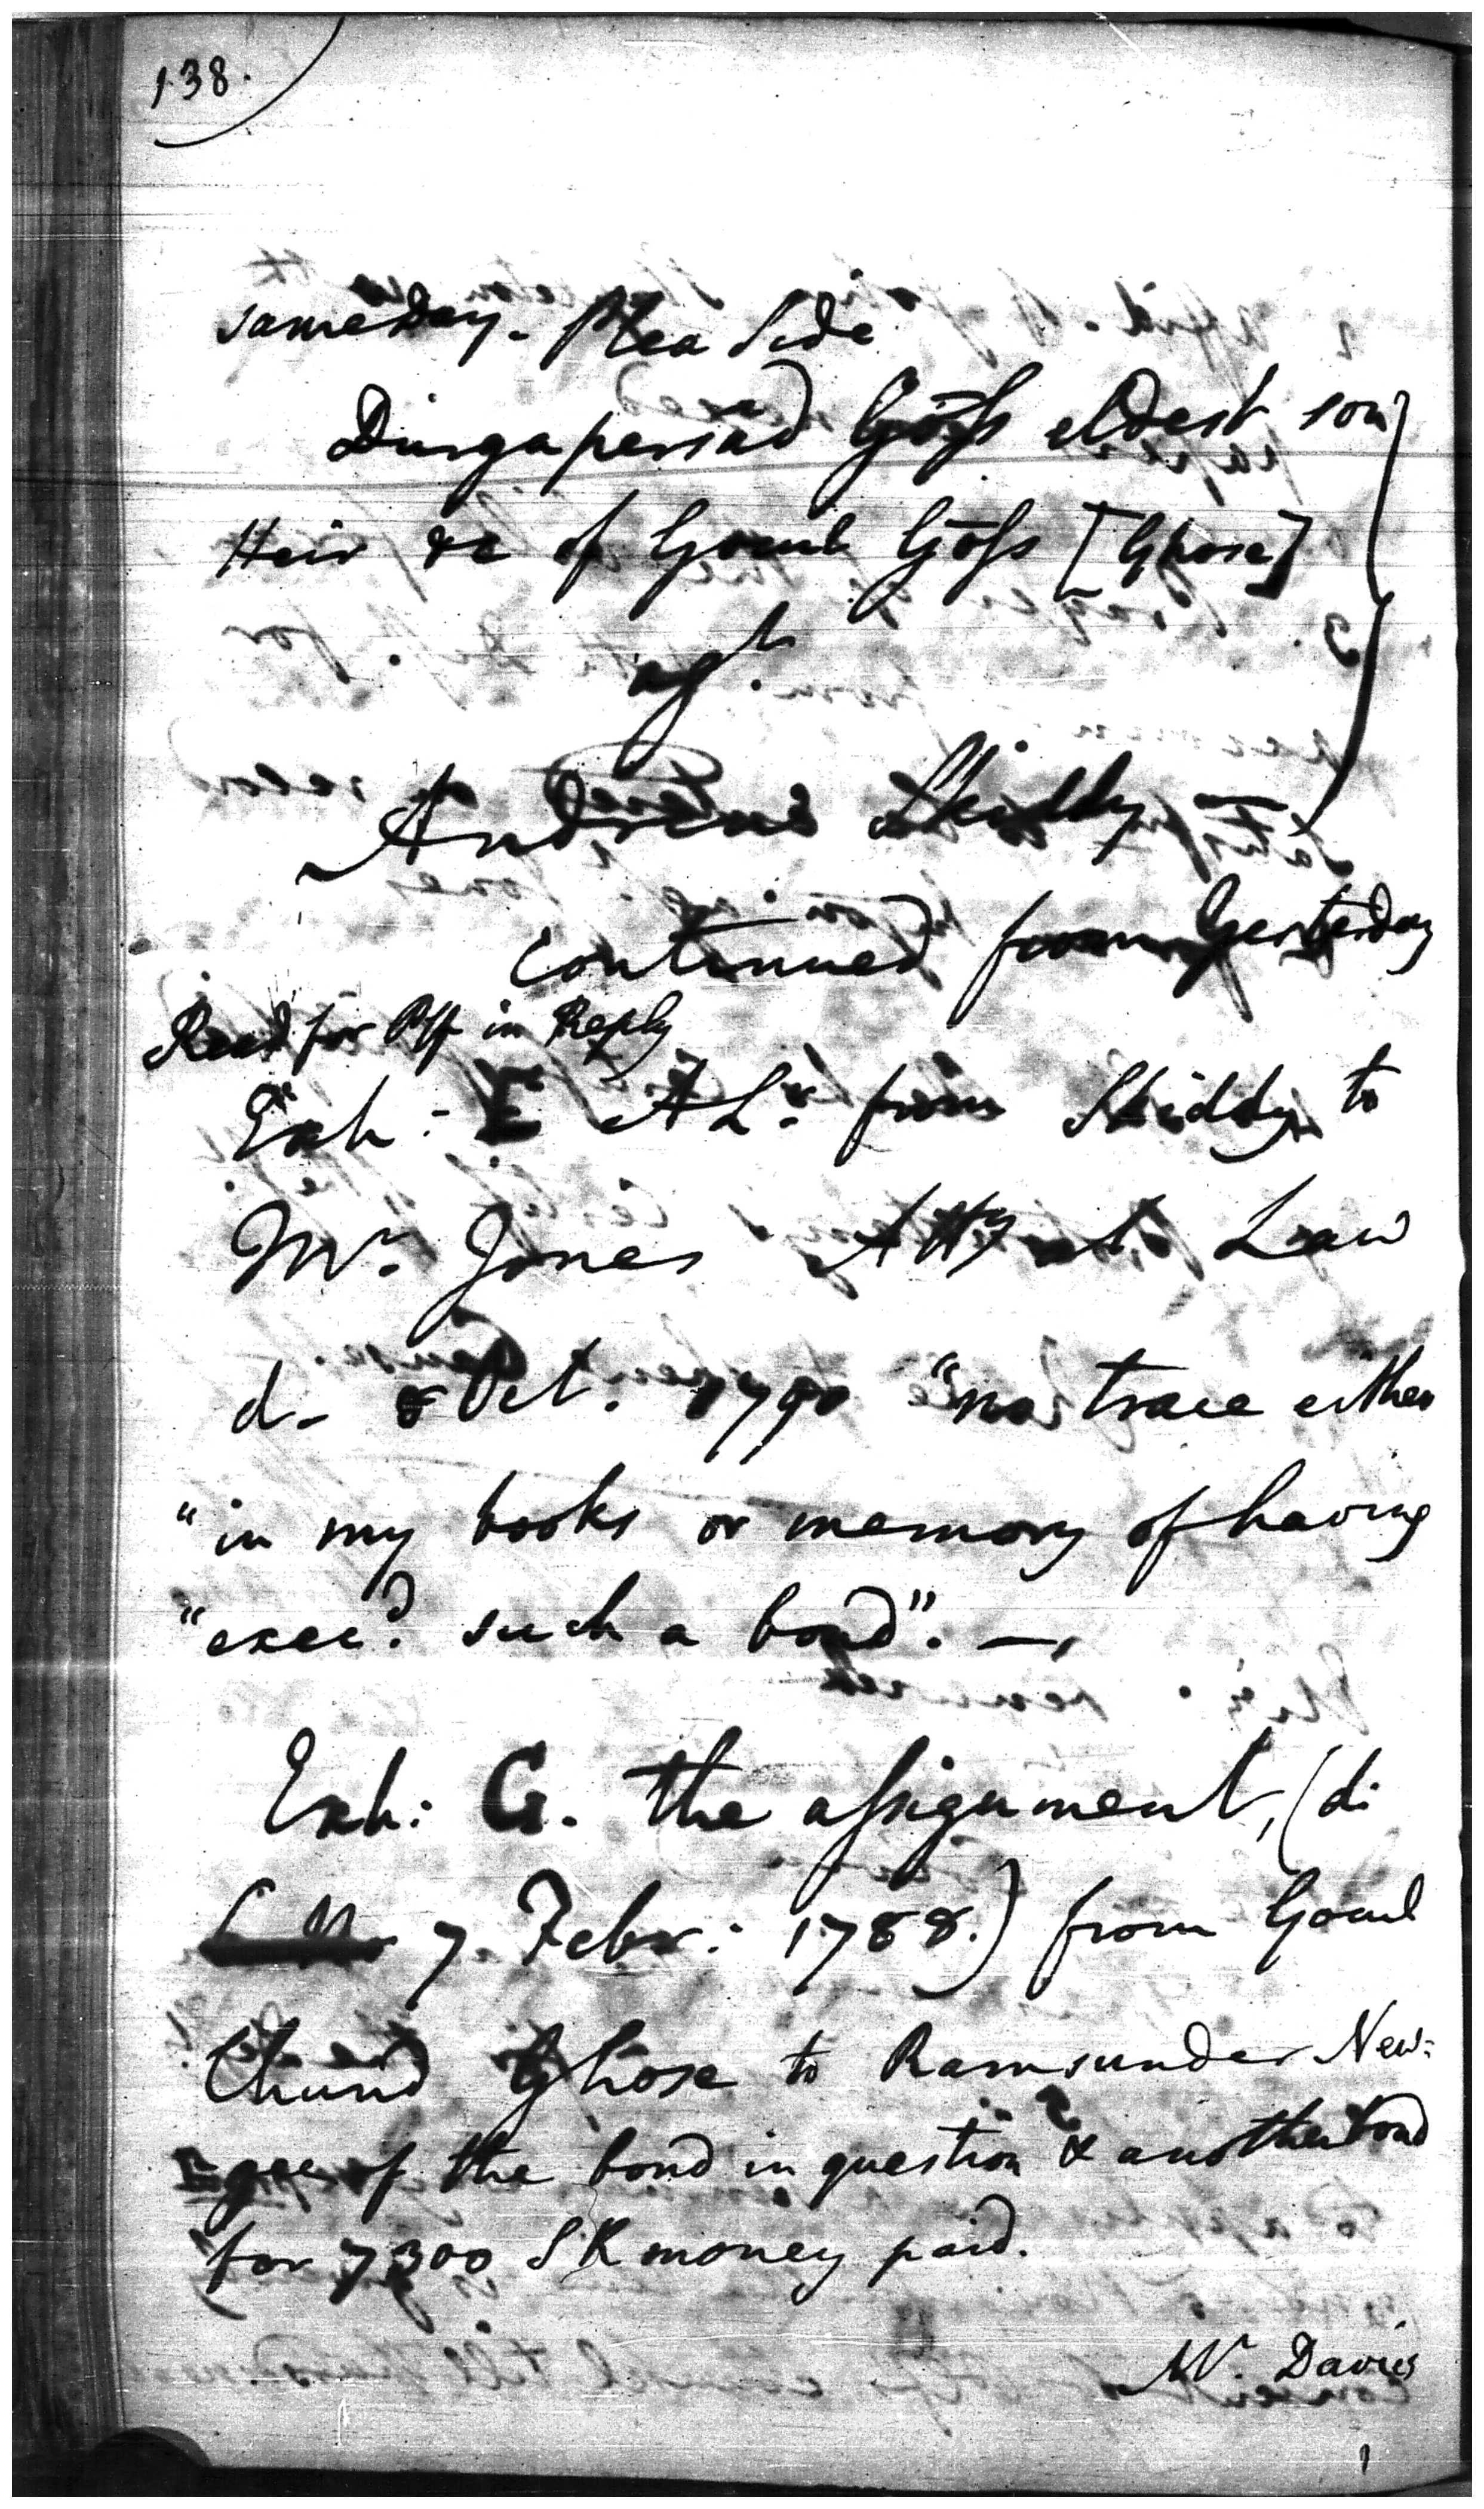 138.
same Day. Plea Side
Durgapersad Gōss eldest son
Heir &c of Gocul Gōss [Ghose]
agt.
Andrew Skiddy
continued from Yesterday
Read for Plff in Reply
Exh: E A Lr. from Skiddy to
Mr. Jones Atty at Law
d- 8 Oct. 1790 "no trace either
"in my books or memory of having
"execd. such a bond". —
Exh: G. the assignment, (d:
7 Febr: 1788.) from Gocul
Chund Ghose to Ramsunder New-
gee of the bond in question & another bond
for 7300 SR money paid.
Mr. Davies